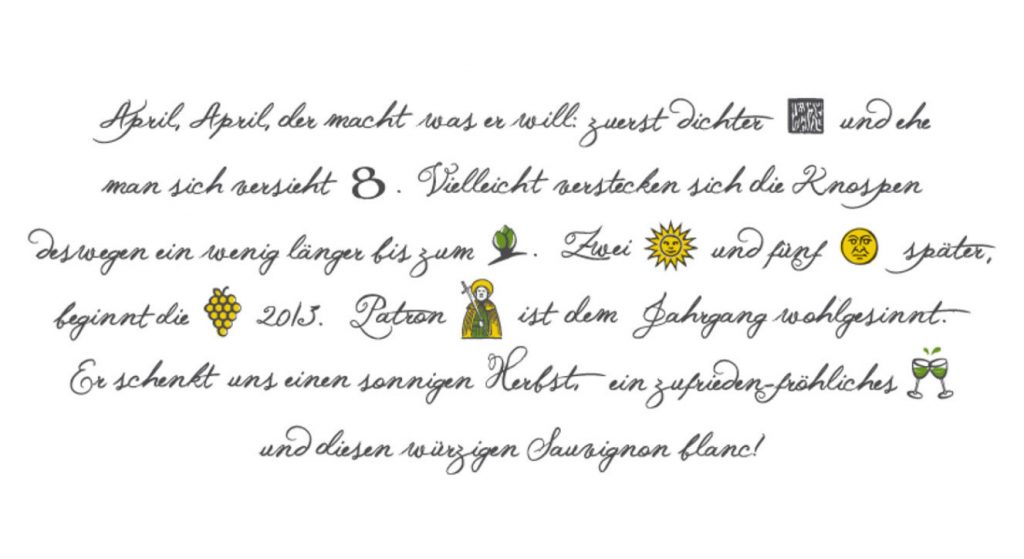 April, April, der macht was er will: zuerst dichter und ehe
man sich versieht 8. Vielleicht verstecken sich die Knospen
deswegen ein wenig länger bis zum . Zwei und fünf später,
beginnt die 2013. Patron ist dem Jahrgang wohlgesinnt.
Er schenkt uns einen sonnigen Herbst, ein zufrieden-fröhliches
und diesen würzigen Sauvignon blanc!